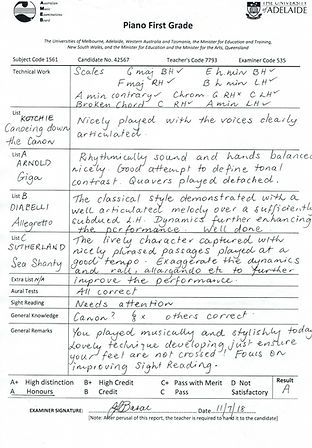 Australian Music Examinations Board
THE UNIVERSITY of ADELAIDE
Piano First Grade
The Universities of Melbourne, Adelaide, Western Australia and Tasmania, the Minister for Education and Training,
New South Wales, and the Minister for Education and the Minister for the Arts, Queensland
Subject Code 1561 Candidate No. 42567 Teacher's Code 7793 Examiner Code 535
Technical Work Scales G maj BH✓ E h min BH✓
F maj RH✓ D h min BH✓
A min contrary✓ Chrom. G RH✗ C LH✓
Broken Chord C RH✓ A min LH✓
List KOTCHIE Nicely played with the voices clearly
Canoeing down articulated.
the Canon
List A Rhythmically sound and hands balanced
ARNOLD nicely. Good attempt to define tonal
Giga contrast. Quavers played detached.
List B The classical style demonstrated with a
DIABELLI well articulated melody over a sufficiently
Allegretto subdued L.H. Dynamics further enhancing
the performance. Well done
List C The lively character captured with
SUTHERLAND nicely phrased passages played at a
Sea Shanty good tempo. Exaggerate the dynamics
and rall, allargando etc to further
Extra List n/a improve the performance.
Aural Tests All correct
Sight Reading Needs attention
General Knowledge Canon? ✗ others correct
General Remarks You played musically and stylishly today
Lovely technique developing just ensure
your feet are not crossed! Focus on
improving Sight Reading.
A+ High distinction B+ High Credit C+ Pass with Merit D Not Result
A Honours B Credit C Pass Satisfactory A
EXAMINER SIGNATURE: Date 11/7/18
[Note: After perusal of this report, the teacher is required to hand it to the candidate]